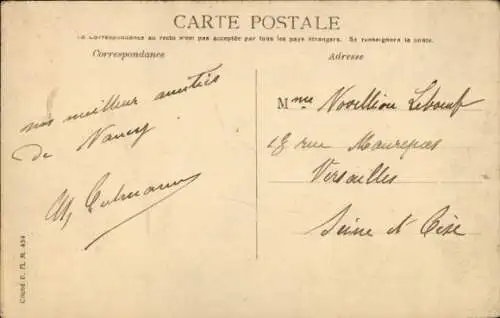 CARTE POSTALE
La Correspondance au recto n'est pas acceptée par tous les pays étrangers. Se renseigner à la poste.
Correspondance
Adresse
nos meilleur amitiés
de Nancy
Mme Novillion Leboeuf
18 rue Maurepas
Versailles
Seine et Oise
Cliché E. M. N. 454